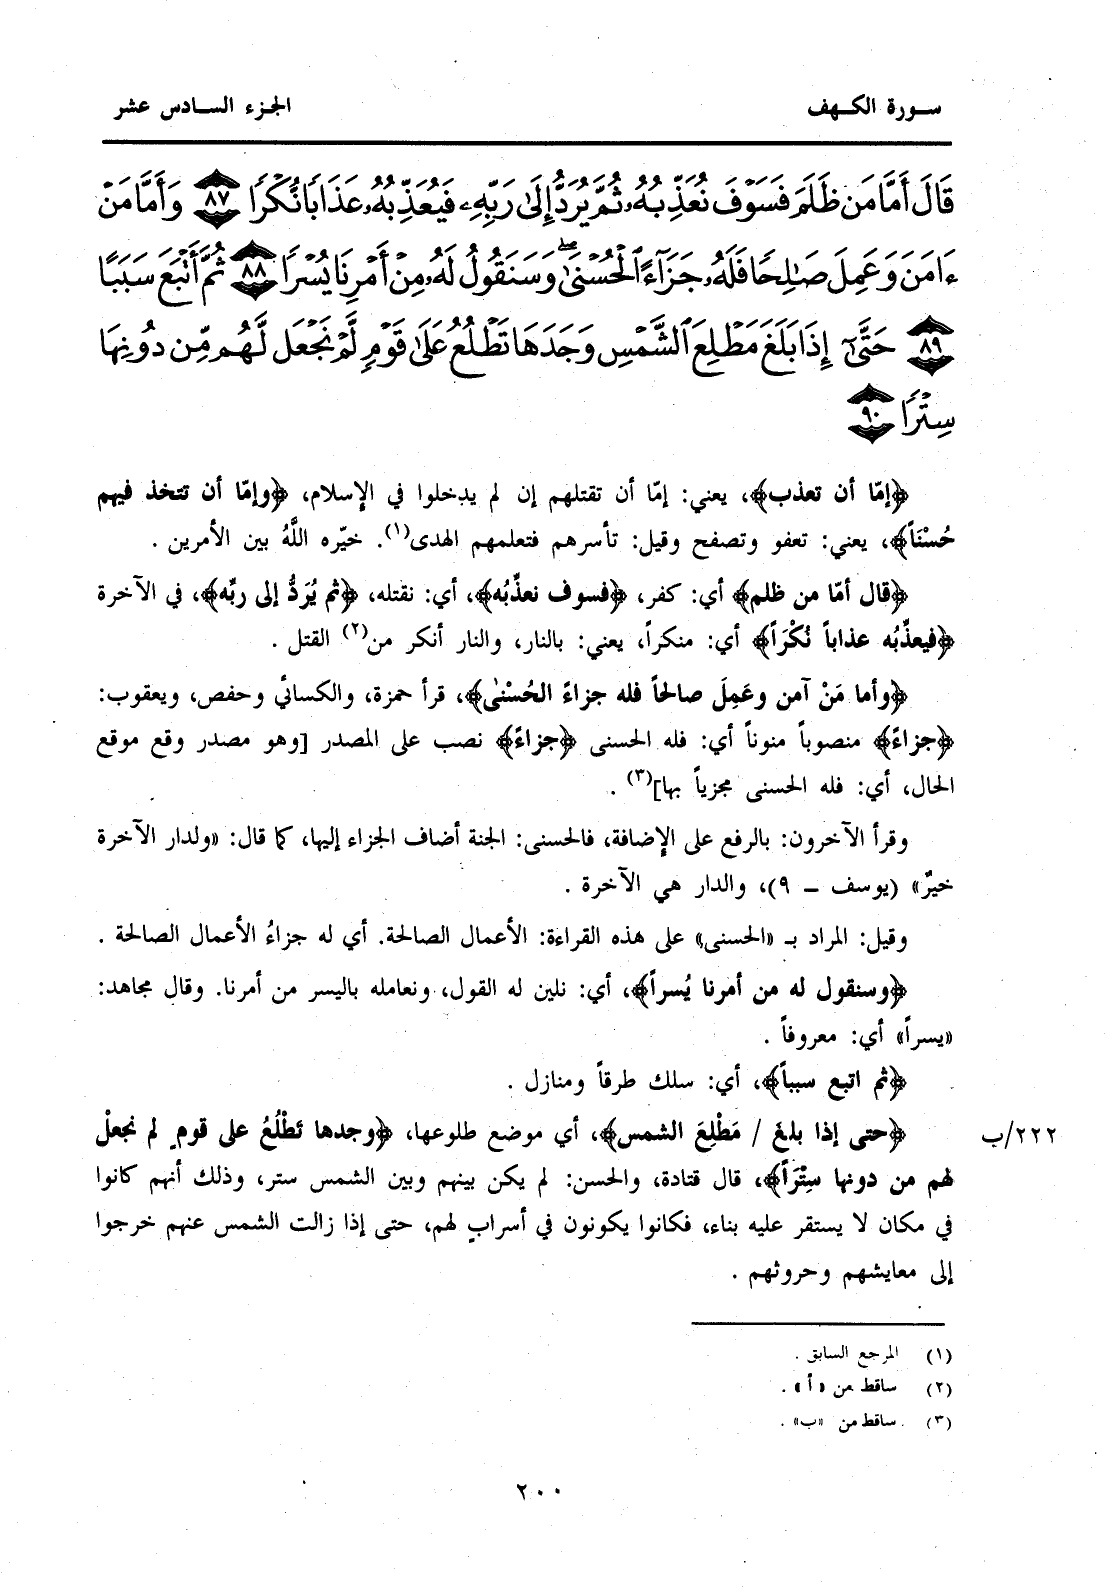 سورة الكهف
الجزء السادس عشر
قَالَ أَمَّا مَن ظَلَمَ فَسَوْفَ نُعَذِّبُهُۥ ثُمَّ يُرَدُّ إِلَىٰ رَبِّهِۦ فَيُعَذِّبُهُۥ عَذَابًا نُّكْرًا ٨٧ وَأَمَّا مَنْ
ءَامَنَ وَعَمِلَ صَٰلِحًا فَلَهُۥ جَزَآءً ٱلْحُسْنَىٰ ۖ وَسَنَقُولُ لَهُۥ مِنْ أَمْرِنَا يُسْرًا ٨٨ ثُمَّ أَتْبَعَ سَبَبًا
٨٩ حَتَّىٰٓ إِذَا بَلَغَ مَطْلِعَ ٱلشَّمْسِ وَجَدَهَا تَطْلُعُ عَلَىٰ قَوْمٍ لَّمْ نَجْعَل لَّهُم مِّن دُونِهَا
سِتْرًا ٩٠
﴿إمّا أن تعذب﴾، يعني: إمّا أن تقتلهم إن لم يدخلوا في الإسلام، ﴿وإمّا أن تتخذ فيهم
حُسْنَاً﴾، يعني: تعفو وتصفح وقيل: تأسرهم فتعلمهم الهدى(١). خيّره اللَّهُ بين الأمرين .
﴿قال أمّا من ظلم﴾ أي: كفر، ﴿فسوف نعذّبُه﴾، أي: نقتله، ﴿ثم يُرَدُّ إلى ربِّه﴾، في الآخرة
﴿فيعذِّبُه عذاباً نُكْرَاً﴾ أي: منكراً، يعني: بالنار، والنار أنكر من(٢) القتل .
﴿وأما مَنْ آمن وعَمِلَ صالحاً فله جزاءً الحُسْنىٰ﴾، قرأ حمزة، والكسائي وحفص، ويعقوب:
﴿جزاءً﴾ منصوباً منوناً أي: فله الحسنى ﴿جزاءً﴾ نصب على المصدر [وهو مصدر وقع موقع
الحال، أي: فله الحسنى مجزياً بها](٣) .
وقرأ الآخرون: بالرفع على الإضافة، فالحسنى: الجنة أضاف الجزاء إليها، كما قال: «ولدار الآخرة
خيرٌ» (يوسف ــ ٩)، والدار هي الآخرة .
وقيل: المراد بـ «الحسنى» على هذه القراءة: الأعمال الصالحة. أي له جزاءُ الأعمال الصالحة .
﴿وسنقول له من أمرنا يُسراً﴾، أي: نلين له القول، ونعامله باليسر من أمرنا. وقال مجاهد:
«يسراً» أي: معروفاً .
﴿ثم اتبع سبباً﴾، أي: سلك طرقاً ومنازل .
﴿حتى إذا بلغَ / مَطْلِعَ الشمس﴾، أي موضع طلوعها، ﴿وجدها تَطْلُعُ على قومٍ لم نجعلْ
٢٢٢/ب
لهم من دونها سِتْرَاً﴾، قال قتادة، والحسن: لم يكن بينهم وبين الشمس ستر، وذلك أنهم كانوا
في مكان لا يستقر عليه بناء، فكانوا يكونون في أسرابٍ لهم، حتى إذا زالت الشمس عنهم خرجوا
إلى معايشهم وحروثهم .
(١) المرجع السابق .
(٢) ساقط من «أ» .
(٣) ساقط من «ب» .
٢٠٠